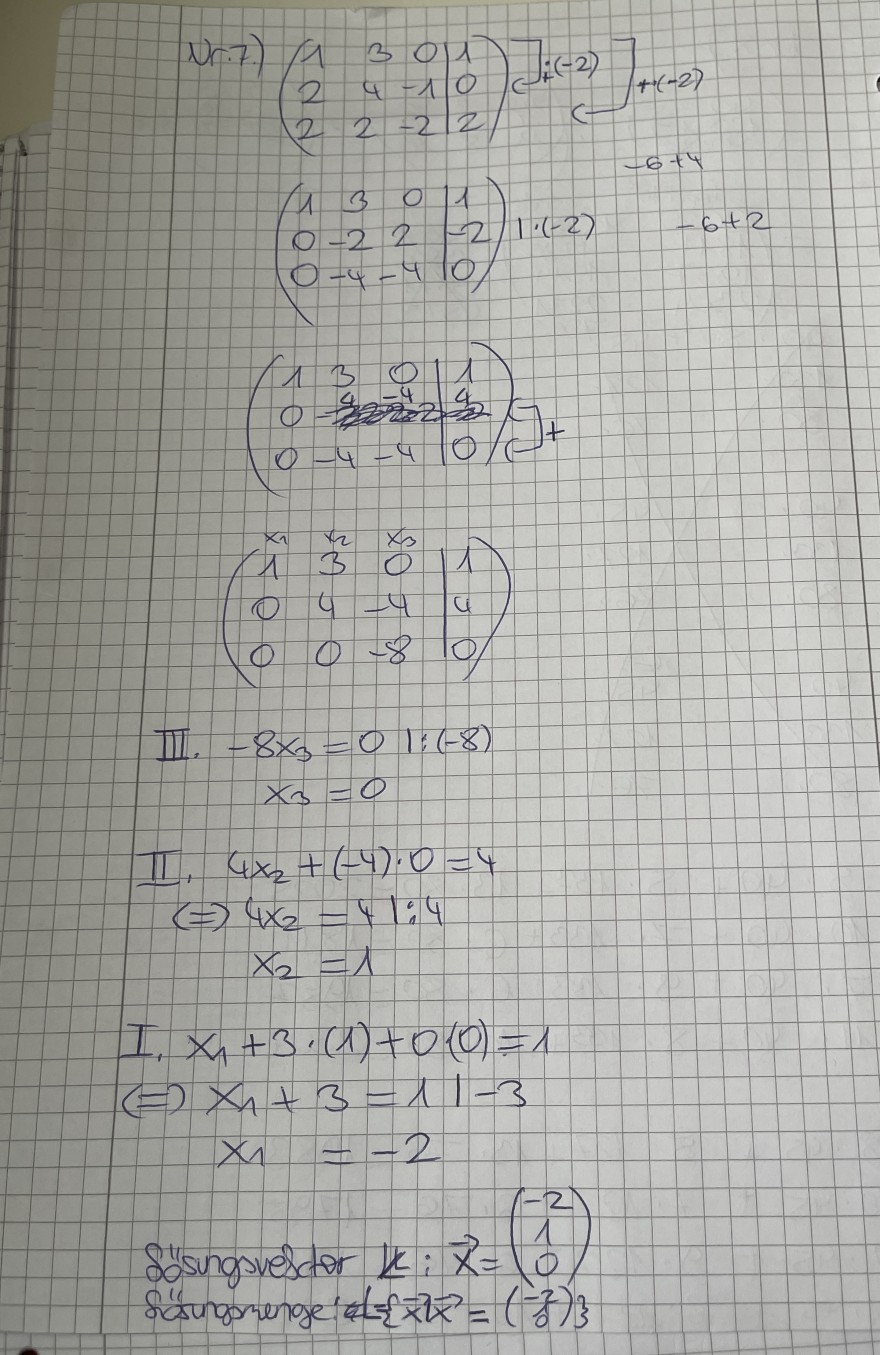 Nr.7.) (1 3 0 | 1) ·(-2) +·(-2)
(2 4 -1 | 0)
(2 2 -2 | 2)
-6+4
(1 3 0 | 1)
(0 -2 2 | -2) |·(-2) -6+2
(0 -4 -4 | 0)
(1 3 0 | 1)
(0 4 -4 | 4)
(0 -4 -4 | 0) +
x1 x2 x3
(1 3 0 | 1)
(0 4 -4 | 4)
(0 0 -8 | 0)
III. -8x3 = 0 |:(-8)
x3 = 0
II. 4x2 + (-4)·0 = 4
(=) 4x2 = 4 |:4
x2 = 1
I. x1 + 3·(1) + 0(0) = 1
(=) x1 + 3 = 1 | -3
x1 = -2
(-2)
(1)
Lösungsvektor : x⃗ = (0)
Lösungsmenge: = {x⃗|x⃗ =